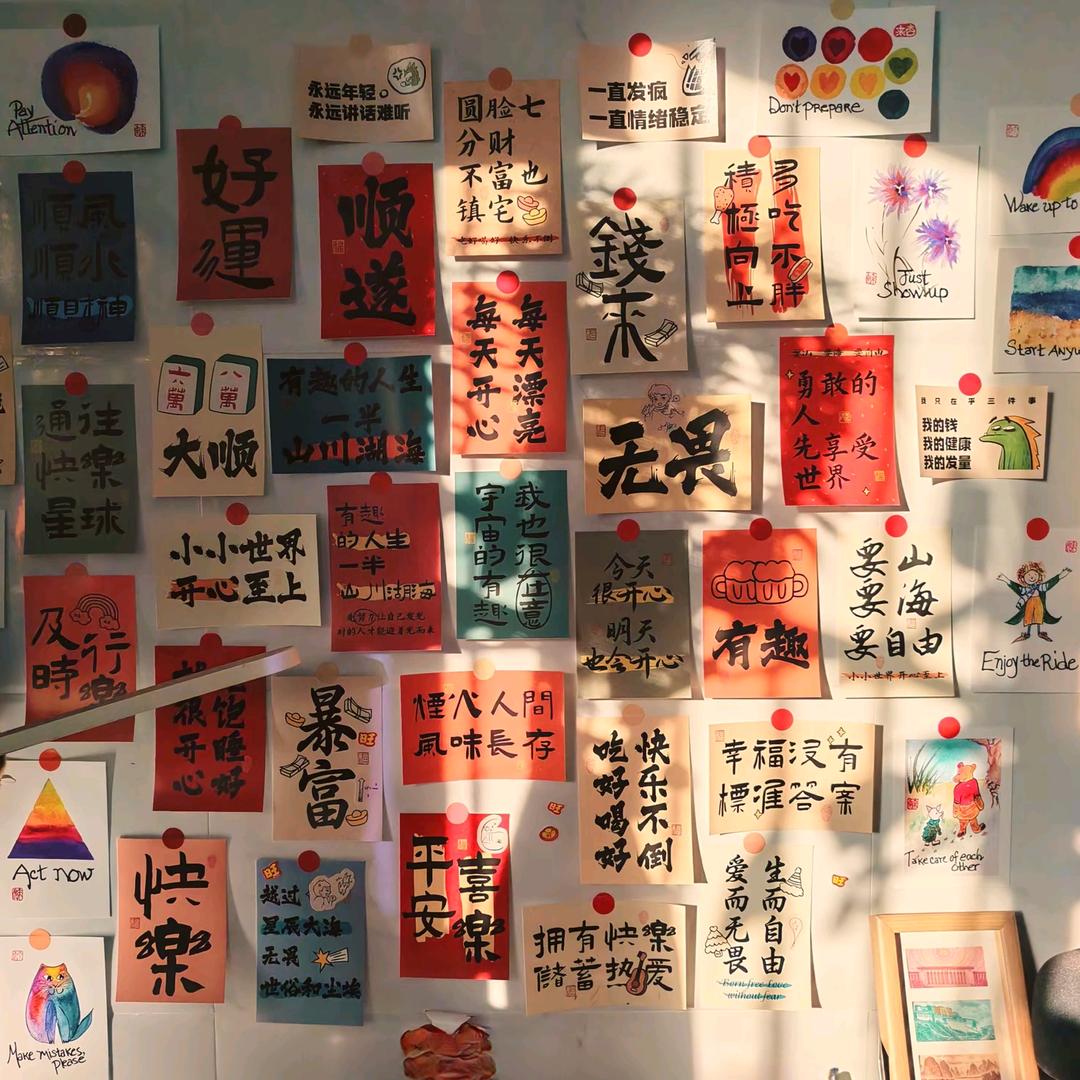 Pay
Attention
永远年轻。
永远讲话难听
圆脸七
分财
不富也
镇宅
一直发疯
一直情绪稳定
Don't prepare
Wake up to
順風
順水
順財神
好
運
顺
遂
錢
来
多吃不胖
積極向上
Just
Show up
Start Anyw
每天漂亮
每天开心
六萬
八萬
大顺
有趣的人生
一半
山川湖海
无畏
勇敢的
人
先享受
世界
我只在乎三件事
我的钱
我的健康
我的发量
通往
快樂
星球
小小世界
开心至上
有趣
的人生
一半
山川湖海
我也很在意
宇宙的有趣
今天
很开心
明天
也会开心
有趣
山海自由
要要要
小小世界开心至上
Enjoy the Ride
及時
行樂
吃饱睡好
很开心
暴
富
煙火人間
風味長存
快乐不倒
吃好喝好
幸福没有
標準答案
Take care of each
other
Act now
快
樂
越过
星辰大海
无畏
世俗和尘埃
平安
喜樂
拥有快樂
儲蓄热爱
生而自由
爱而无畏
Born free Love
without fear
Make mistakes,
please